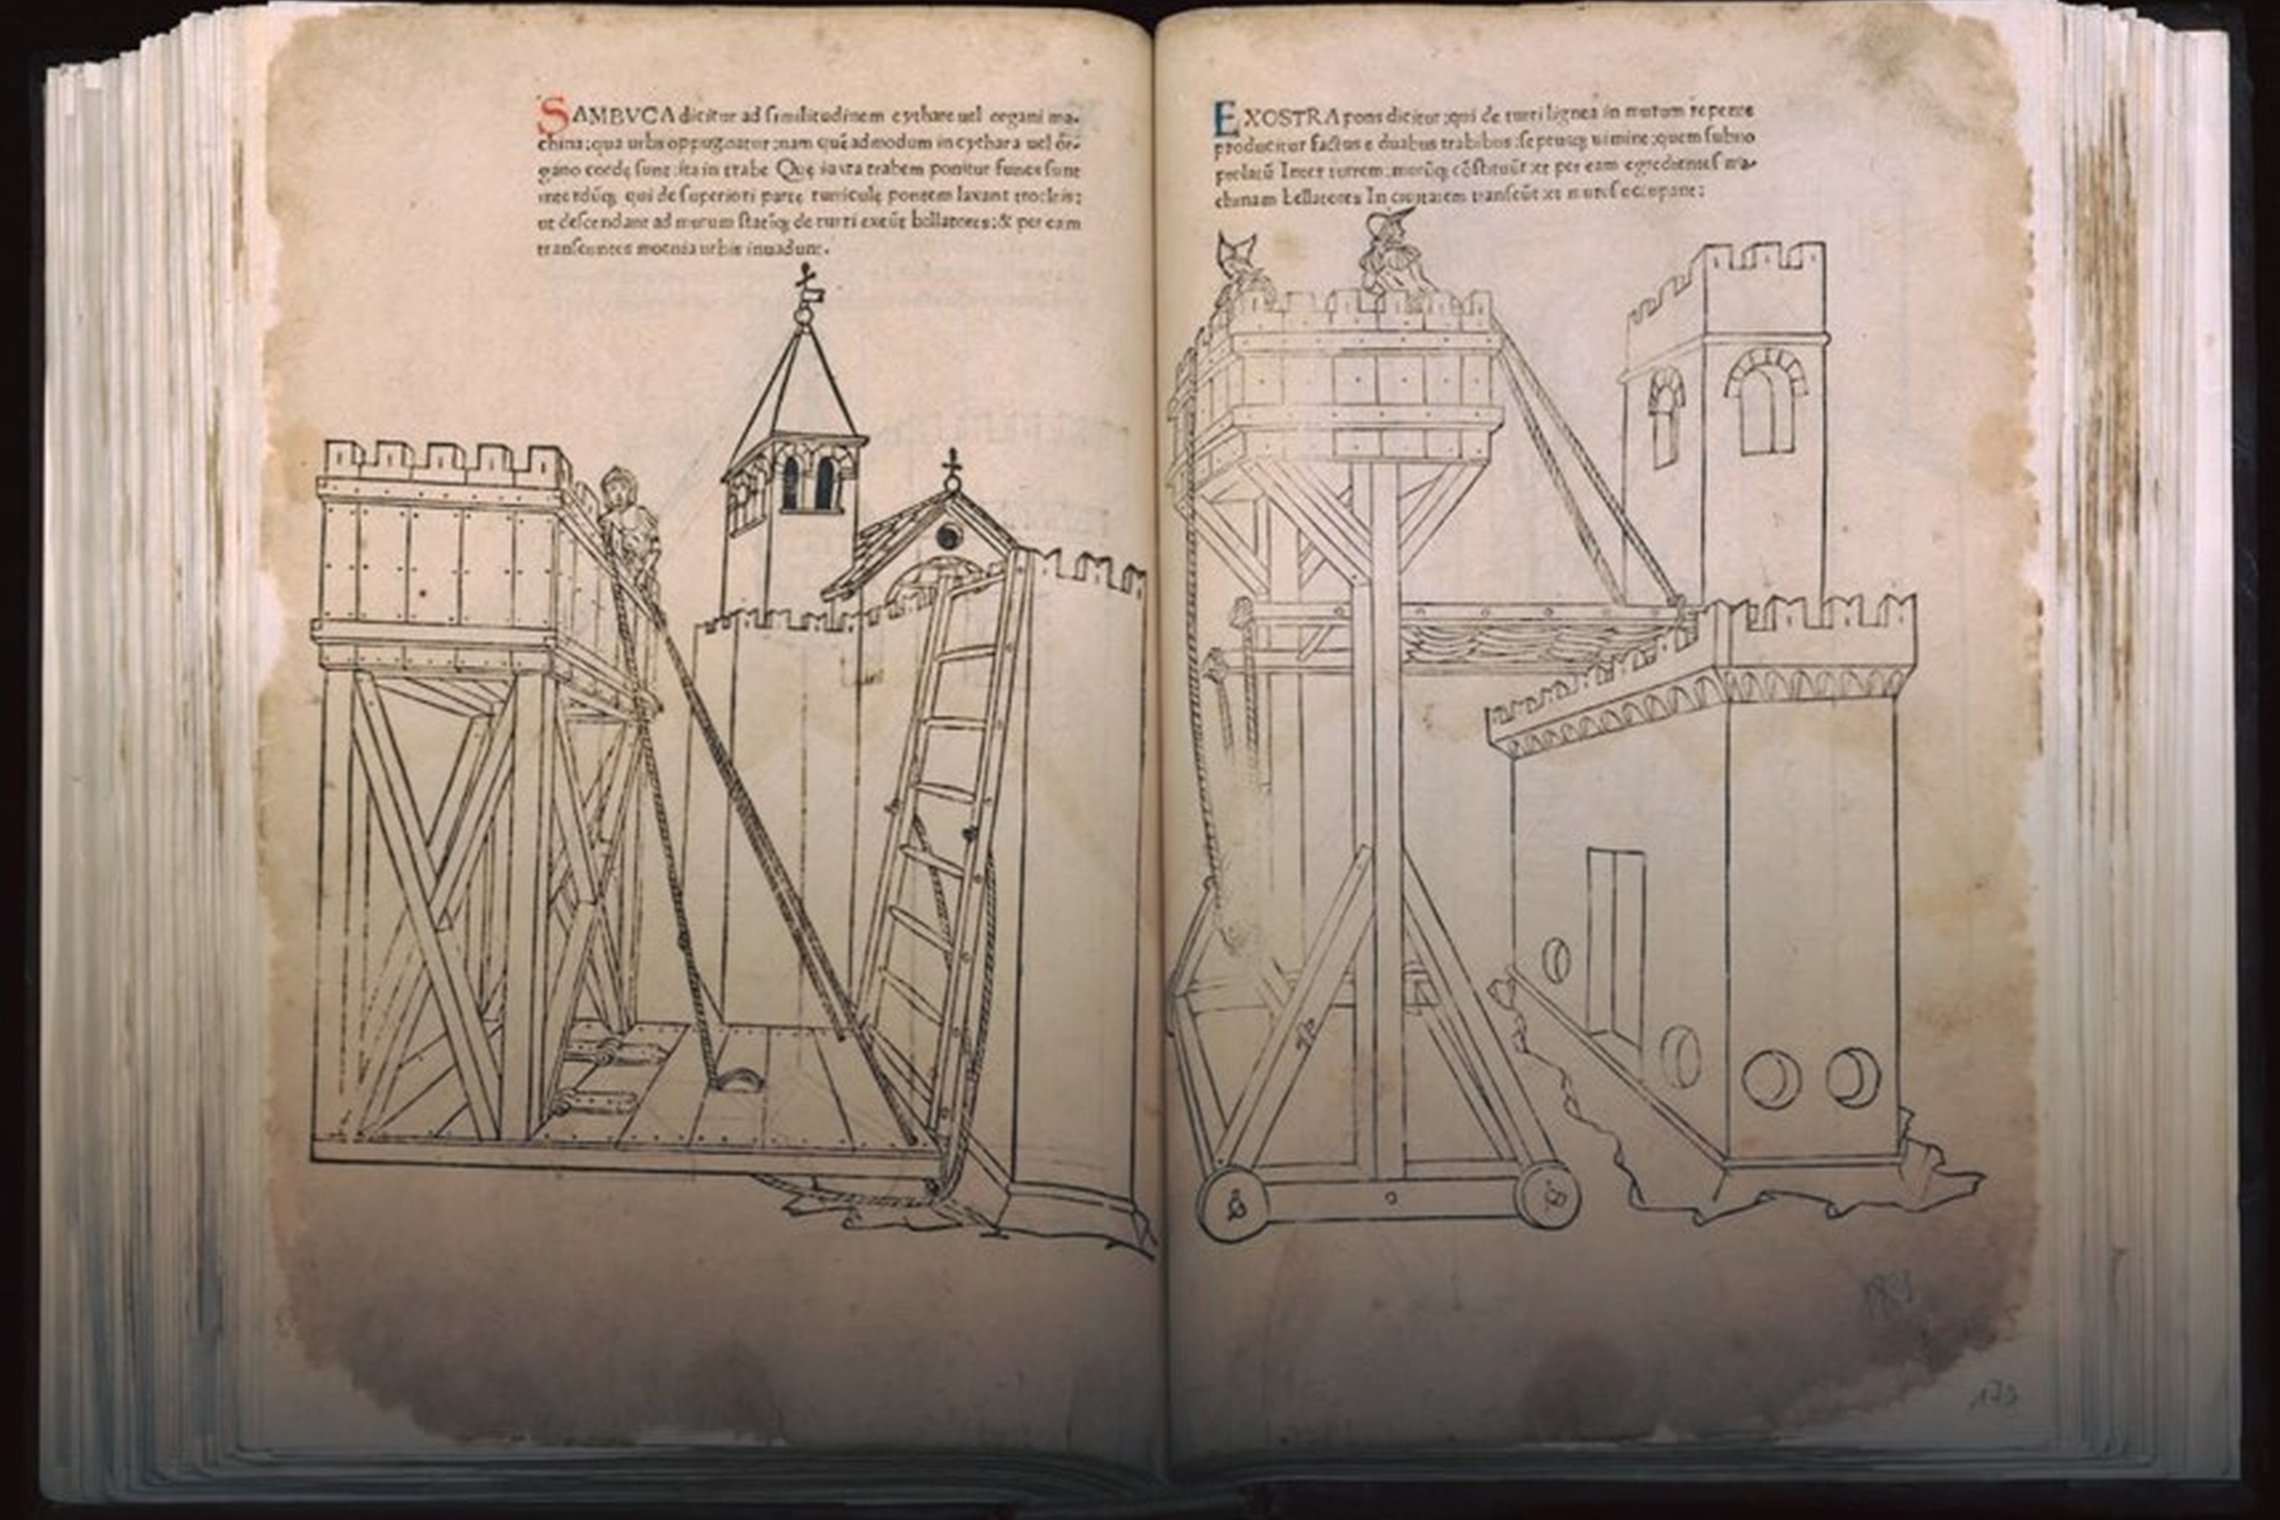 SAMBVCA dicitur ad similitudinem cythare uel organi ma-
china: qua urbs oppugnatur: nam quē admodum in cythara uel or-
gano corde sunt: ita in trabe Que iuxta trabem ponitur funes sunt
interdūq; qui de superiori parte turricule pontem laxant trocleis:
ut descendant ad murum statīq; de turri exeūt bellatores: & per eam
transeuntes moenia urbis inuadunt.
EXOSTRA pons dicitur: qui de turri lignea in murum repente
producitur factus e duabus trabibus: septusq; uimine: quem subito
prolatū Inter turrem: murūq; cōstituūt: et per eam egredientes ma-
chinam bellatores In ciuitatem transeūt: et muros occupant:
173